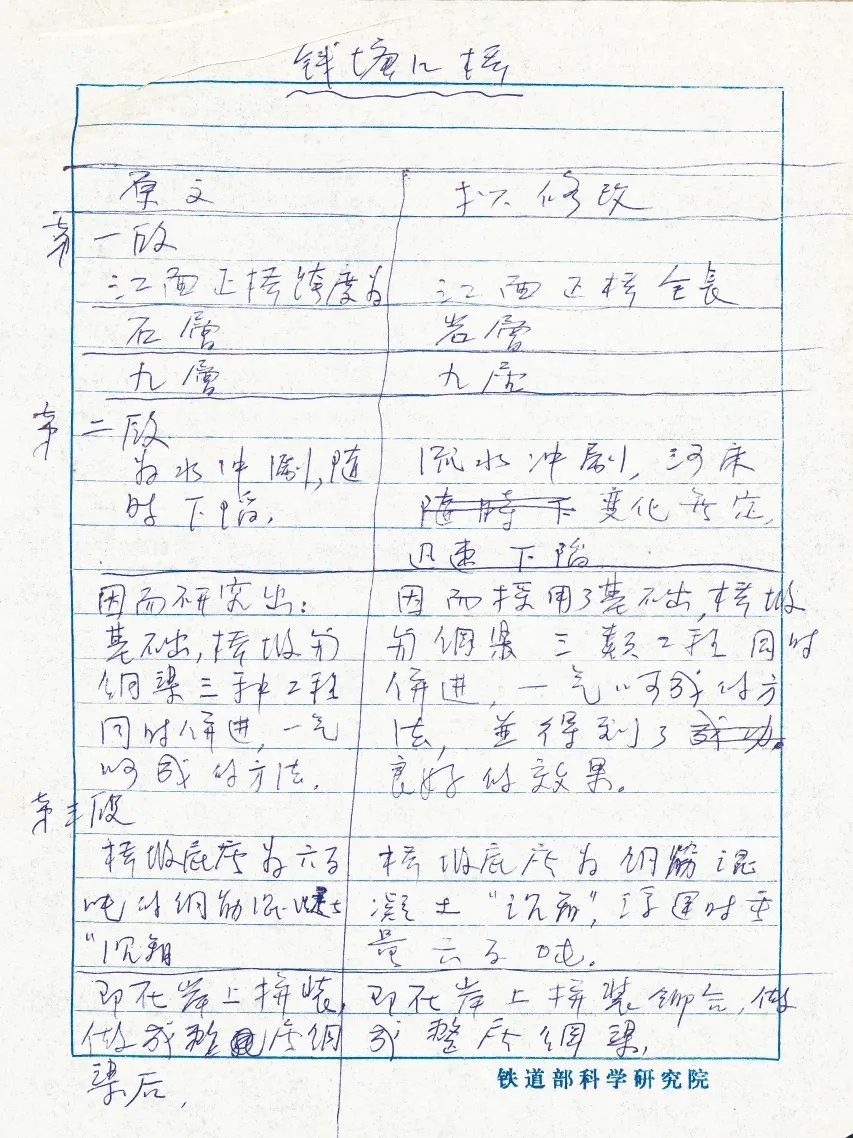 钱塘江桥
原文 拟修改
第一段
江面正桥跨度为 江面正桥全長
石層 岩層
九層 九层
第二段
为水冲刷,随 流水冲刷,河床
时下陷。 随時下 变化无定,
迅速下陷
因而研究出: 因而採用了基础,桥墩
基础,桥墩和 和钢梁三类工程同时
钢梁三种工程 併进,一气呵成的方
同时併进,一气 法,並得到了成功
呵成的方法。 良好的效果。
第三段
桥墩底座为六百 桥墩底座为钢筋混
吨的钢筋混凝土 凝土“沉箱”,浮運时重
“沉箱 量六百吨。
即在岸上拼装, 即在岸上拼装鉚合,做
做成整座钢 成整座钢梁,
梁后,
铁道部科学研究院